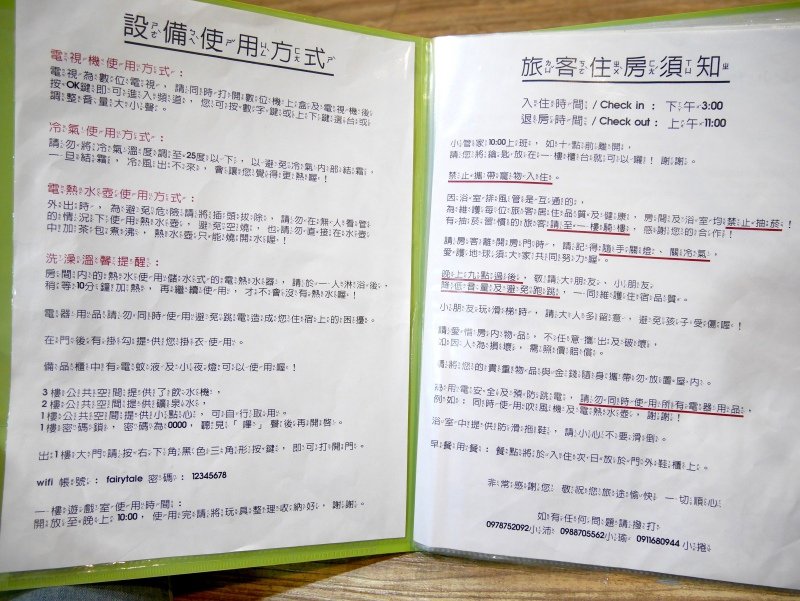 設備使用方式
電視機使用方式：
電視為數位電視，請同時打開數位機上盒及電視機後
按OK鍵即可進入頻道，您可按數字鍵或上下鍵選台或
調整音量大小聲。
冷氣使用方式：
請勿將冷氣溫度調至25度以下，以避免冷氣內部結霜，
一旦結霜，冷風出不來，會讓您覺得更熱喔！
電熱水壺使用方式：
外出時，為避免危險請將插頭拔除，請勿在無人看管
的情況下使用熱水壺，避免空燒，也請勿直接在水壺
中加茶包煮沸，熱水壺只能燒開水喔！
洗澡溫馨提醒：
房間內的熱水使用儲水式的電熱水器，請於一人淋浴後，
稍等10分鐘加熱，再繼續使用，才不會沒有熱水喔！
電器用品請勿同時使用避免跳電造成您住宿上的困擾。
在門後有掛勾提供您掛衣使用。
備品櫃中有電蚊液及小夜燈可以使用喔！
3樓公共空間提供了飲水機，
2樓公共空間提供礦泉水，
1樓公共空間提供小點心，可自行取用。
1樓密碼鎖，密碼為0000，聽見「嗶」聲後再開啓。
出1樓大門請按右下角黑色三角形按鍵，即可打開門。
wifi 帳號：fairytale 密碼：12345678
一樓遊戲室使用時間：
開放至晚上10:00，使用完請將玩具整理收納好，謝謝。
旅客住房須知
入住時間 / Check in：下午3:00
退房時間 / Check out：上午11:00
小管家10:00上班，如十點前離開，
請您將鑰匙放在一樓櫃台就可以囉！謝謝。
禁止攜帶寵物入住。
因浴室排風管是互通的，
為維護每位旅客居住品質及健康，房間及浴室均禁止抽菸！
有抽菸習慣的旅客請至一樓騎樓，感謝您的合作！
請房客離開房門時，請記得隨手關燈、關冷氣，
愛護地球須大家共同努力喔。
晚上九點過後，敬請大朋友，小朋友
降低音量及避免跑跳，一同維護住宿品質。
小朋友玩滑梯時，請大人多留意，避免孩子受傷喔！
請愛惜房內物品，不任意攜出及破壞，
如因人為損壞，需照價賠償。
請將您的貴重物品與金錢隨身攜帶勿放置屋內。
為用電安全及預防跳電，請勿同時使用所有電器用品，
例如：同時使用吹風機及電熱水壺，謝謝！
浴室中提供防滑拖鞋，請小心不要滑倒。
早餐用餐：餐點將於入住次日放於門外鞋櫃上。
非常感謝您 敬祝您旅途愉快 一切順心
如有任何問題請撥打
0978752092小沛 0988705562小瑜 0911680944小捲